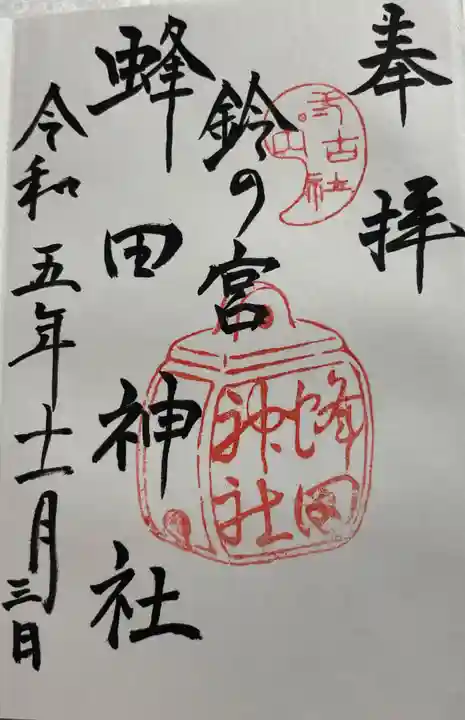 奉拝
鈴の宮
蜂田神社
令和五年十一月三日
式内古社
蜂田
神社